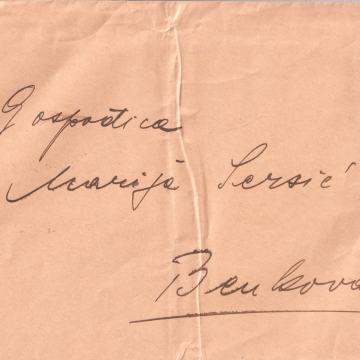 Gospođica
Marija Sersić
Benkova